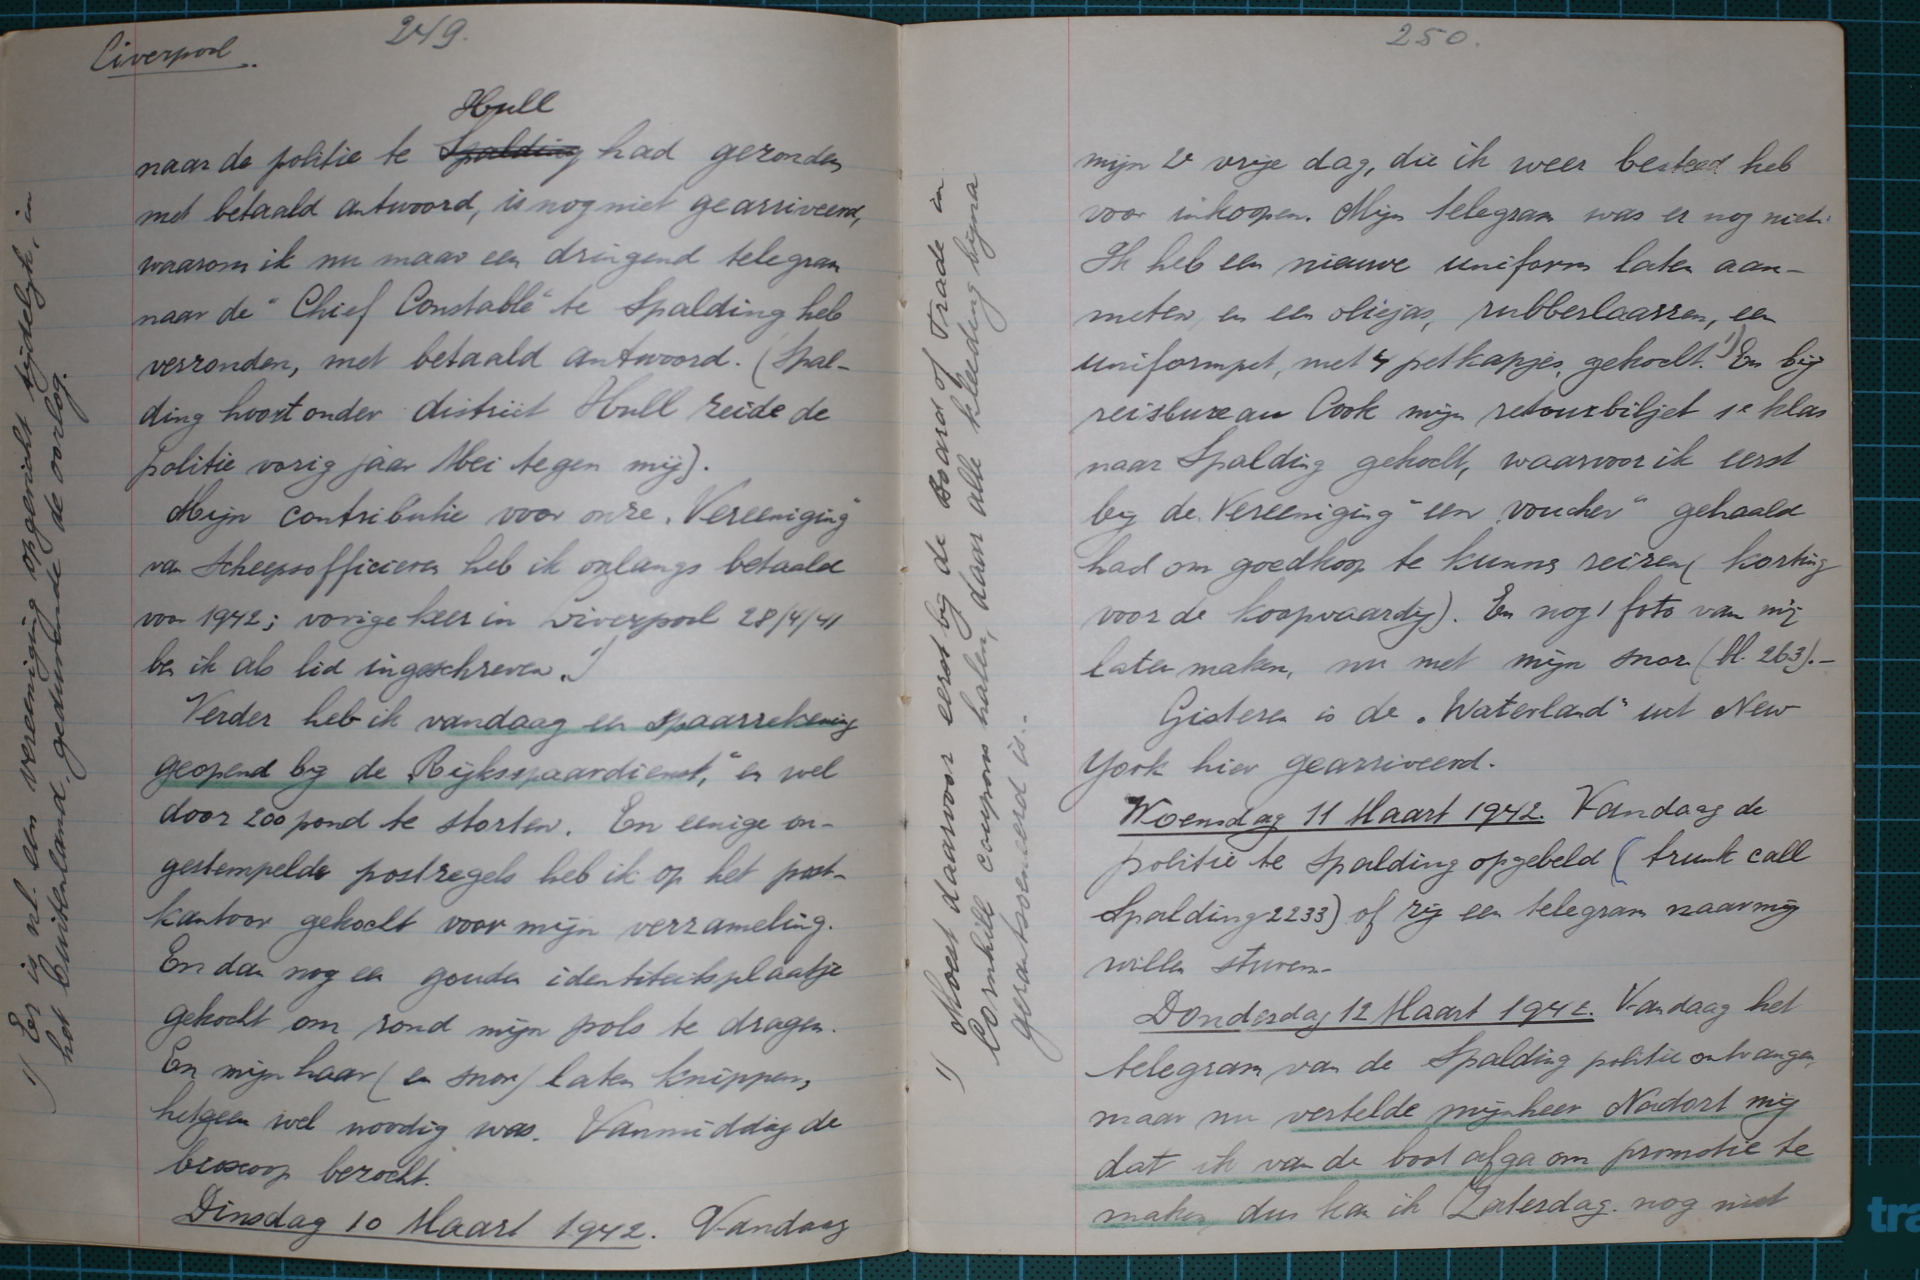 Liverpool.
249.
Hull
naar de politie te Spalding had gezonden
met betaald antwoord, is nog niet gearriveerd,
waarom ik nu maar een dringend telegram
naar de "Chief Constable" te Spalding heb
verzonden, met betaald antwoord. (Spal-
ding hoort onder district Hull zeide de
politie vorig jaar Mei tegen mij).
Mijn contributie voor onze „Vereeniging"
van Scheepsofficieren heb ik onlangs betaald
voor 1942; vorige keer in Liverpool 28/4/41
ben ik als lid ingeschreven. 1)
Verder heb ik vandaag een spaarrekening
geopend bij de „Rijksspaardienst," en wel
door 200 pond te storten. En eenige on-
gestempelde postzegels heb ik op het post-
kantoor gekocht voor mijn verzameling.
En dan nog een gouden identiteitsplaatje
gekocht om rond mijn pols te dragen.
En mijn haar (en snor) laten knippen,
hetgeen wel noodig was. Vanmiddag de
bioscoop bezocht.
Dinsdag 10 Maart 1942. Vandaag
1) Er is nl. een vereeniging opgericht tijdelijk, in
het buitenland, gedurende de oorlog.
250.
mijn 2e vrije dag, die ik weer besteed heb
voor inkoopen. Mijn telegram was er nog niet.
Ik heb een nieuwe uniform laten aan-
meten, en een oliejas, rubberlaarzen, een
uniformpet, met 4 petkapjes, gekocht. 1) En bij
reisbureau Cook mijn retourbiljet 1e klas
naar Spalding gekocht, waarvoor ik eerst
bij de „Vereeniging" een „voucher" gehaald
had om goedkoop te kunnen reizen (korting
voor de koopvaardij). En nog 1 foto van mij
laten maken, nu met mijn snor (bl. 263).-
Gisteren is de „Waterland" uit New
York hier gearriveerd.
Woensdag 11 Maart 1942. Vandaag de
politie te Spalding opgebeld (trunk call
Spalding 2233) of zij een telegram naar mij
willen sturen.
Donderdag 12 Maart 1942. Vandaag het
telegram van de Spalding politie ontvangen,
maar nu vertelde mijnheer Nordort mij
dat ik van de boot afga om promotie te
maken, dus kan ik Zaterdag nog niet
1) Moest daarvoor eerst bij de Board of Trade in
Cornhill coupons halen, daar alle kleeding bijna
gerantsoeneerd is.-